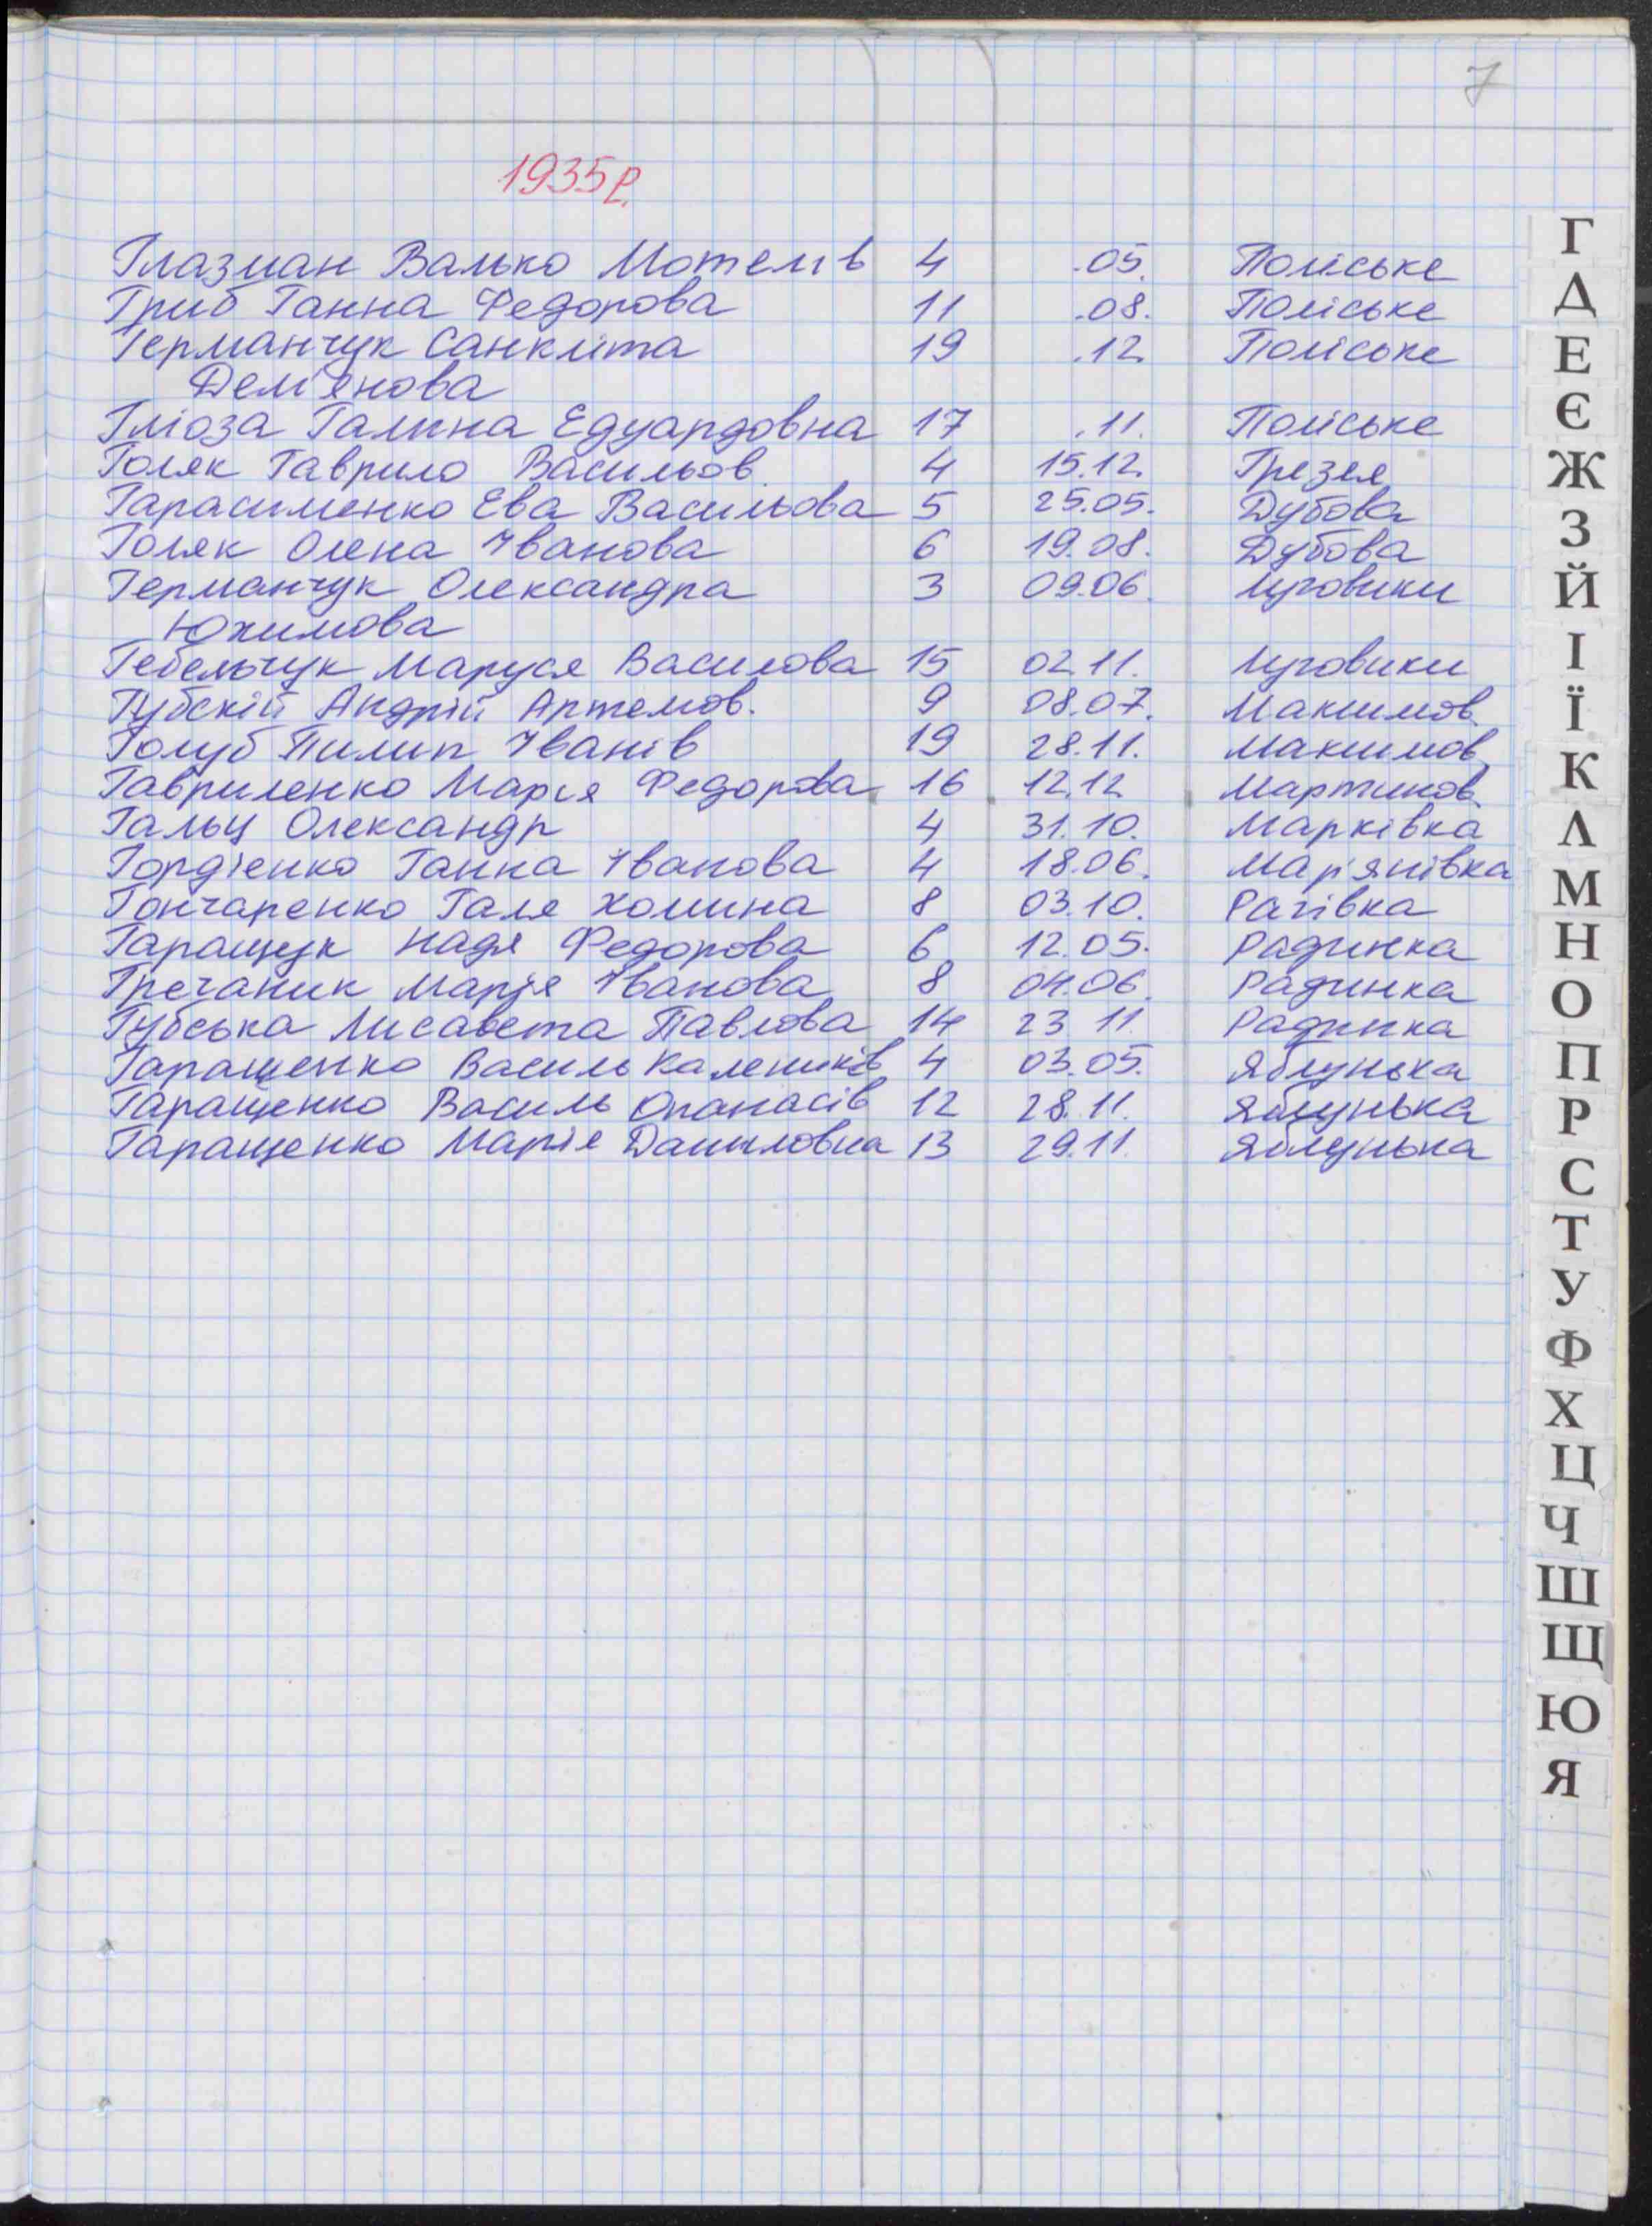 7
1935р.
Глазман Валько Мотелів 4 .05. Поліське
Гриб Ганна Федорова 11 .08. Поліське
Германчук Санкліта 19 .12. Поліське
Дем'янова
Гліоза Галина Едуардовна 17 .11. Поліське
Голяк Гаврило Васильов. 4 15.12. Грезля
Гарасименко Ева Васильова 5 25.05. Дубова
Голяк Олена Іванова 6 19.08. Дубова
Германчук Олександра 3 09.06. Луговики
Юхимова
Гебельчук Маруся Василова 15 02.11. Луговики
Губскій Андрій Артемов. 9 08.07. Максимов.
Голуб Пилип Іванів 19 28.11. Максимов.
Гавриленко Марія Федорова 16 12.12 Мартинов.
Гальц Олександр 4 31.10. Марківка
Гордієнко Ганна Іванова 4 18.06. Мар'янівка
Гончаренко Галя Хомина 8 03.10. Рагівка
Гаращук Надя Федорова 6 12.05. Радинка
Гречаник Марія Іванова 8 04.06. Радинка
Губська Лисавета Павлова 14 23.11. Радинка
Гаращенко Василь Калеників 4 03.05. Яблунька
Гаращенко Василь Опанасів 12 28.11. Яблунька
Гаращенко Марія Даниловна 13 29.11. Яблунька
Г
Д
Е
Є
Ж
З
Й
І
Ї
К
Л
М
Н
О
П
Р
С
Т
У
Ф
Х
Ц
Ч
Ш
Щ
Ю
Я